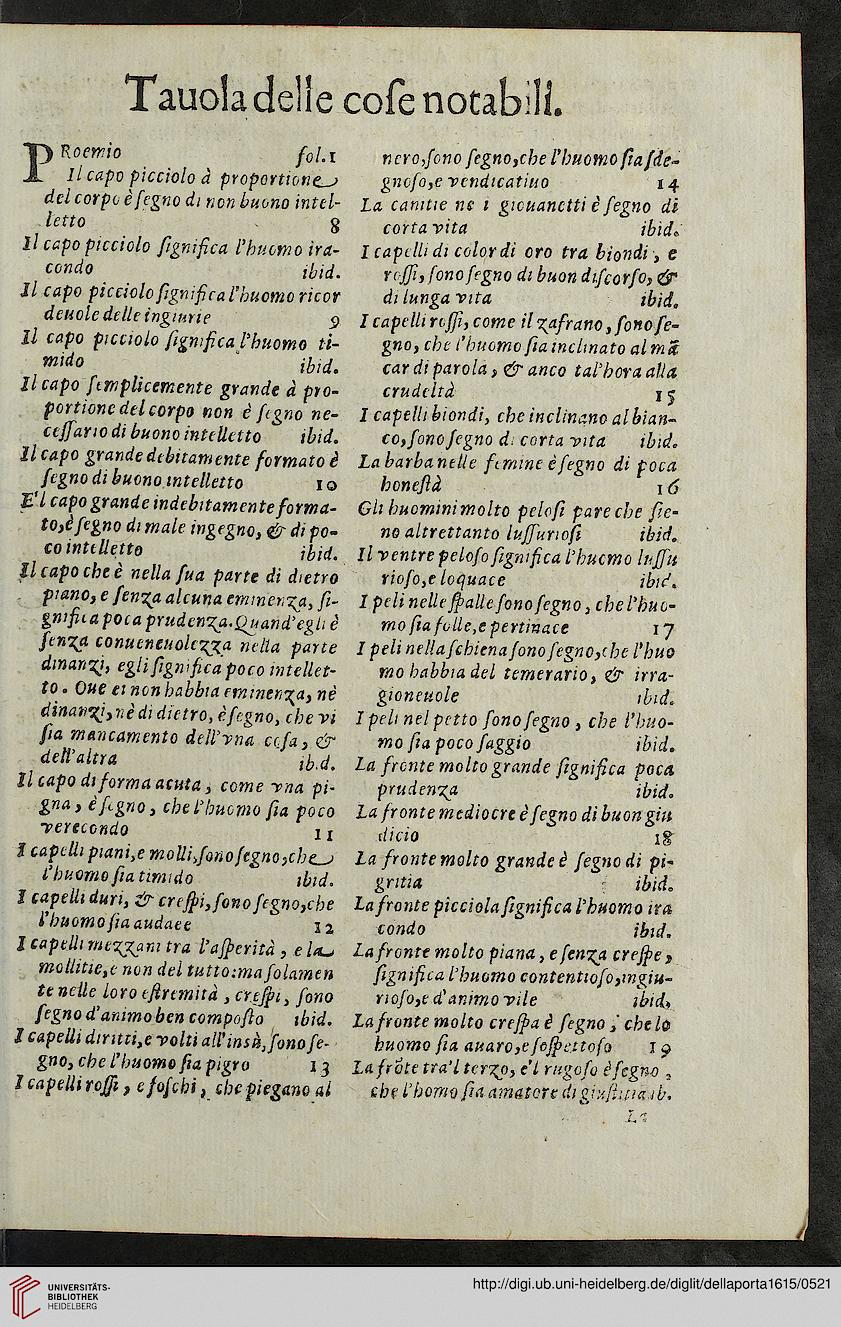 Tauola delle coſe notabili.
PRoemio fol.1
Il capo picciolo à proportione
del corpo è ſegno di non buono intel-
letto 8
Il capo picciolo ſignifica l'huomo ira-
condo ibid.
Il capo picciolo ſignifica l'huomo ricor
deuole delle ingiurie 9
Il capo picciolo ſignifica l'huomo ti-
mido ibid.
Il capo ſemplicemente grande à pro-
portione del corpo non è ſegno ne-
ceſſario di buono intelletto ibid.
Il capo grande debitamente formato è
ſegno di buono intelletto 10
E'l capo grande indebitamente forma-
to,è ſegno di male ingegno, & di po-
co intelletto ibid.
Il capo che è nella ſua parte di dietro
piano, e ſenza alcuna eminenza, ſi-
gnifica poca prudenza. Quand'egli è
ſenza conueneuolezza nella parte
dinanzi, egli ſignifica poco intellet-
to. Oue ei non habbia eminenza, nè
dinanzi, nè di dietro, è ſegno, che vi
ſia mancamento dell'vna coſa, &
dell'altra ib.d.
Il capo di forma acuta, come vna pi-
gna, è ſegno, che l'huomo ſia poco
verecondo 11
I capelli piani,e molli,ſono ſegno,che
l'huomo ſia timido ibid.
I capelli duri, & creſpi, ſono ſegno,che
l'huomo ſia audace 12
I capelli mezzani tra l'aſperità, e la
mollitie,e non del tutto:ma ſolamen
te nelle loro eſtremità, creſpi, ſono
ſegno d'animo ben compoſto ibid.
I capelli diritti,e volti all'insù,ſono ſe-
gno, che l'huomo ſia pigro 13
I capelli roſſi, e foſchi, che piegano al
nero,ſono ſegno,che l'huomo ſia ſde-
gnoſo,e vendicatiuo 14
La canitie ne i giouanetti è ſegno di
corta vita ibid.
I capelli di color di oro tra biondi, e
roſſi, ſono ſegno di buon diſcorſo, &
di lunga vita ibid.
I capelli roſſi, come il zafrano, ſono ſe-
gno, che l'huomo ſia inclinato al mã
car di parola, & anco tal'hora alla
crudeltà 15
I capelli biondi, che inclinano al bian-
co, ſono ſegno di corta vita ibid.
La barba nelle femine è ſegno di poca
honeſtà 16
Gli huomini molto peloſi pare che ſie-
no altrettanto luſſurioſi ibid.
Il ventre peloſo ſignifica l'huomo luſſu
rioſo,e loquace ibid.
I peli nelle ſpalle ſono ſegno, che l'huo-
mo ſia folle,e pertinace 17
I peli nella ſchiena ſono ſegno,che l'huo
mo habbia del temerario, & irra-
gioneuole ibid.
I peli nel petto ſono ſegno, che l'huo-
mo ſia poco ſaggio ibid.
La fronte molto grande ſignifica poca
prudenza ibid.
La fronte mediocre è ſegno di buon giu
dicio 18
La fronte molto grande è ſegno di pi-
gritia ibid.
La fronte picciola ſignifica l'huomo ira
condo ibid.
La fronte molto piana, e ſenza creſpe,
ſignifica l'huomo contentioſo,ingiu-
rioſo,e d'animo vile ibid,
La fronte molto creſpa è ſegno, che lo
huomo ſia auaro,e ſoſpettoſo 19
La frõte tra'l terzo, e'l rugoſo è ſegno,
che l'homo ſia amatore di giuſtitia ib.
La
UNIVERSITÄTS-
BIBLIOTHEK
HEIDELBERG
http://digi.ub.uni-heidelberg.de/diglit/dellaporta1615/0521